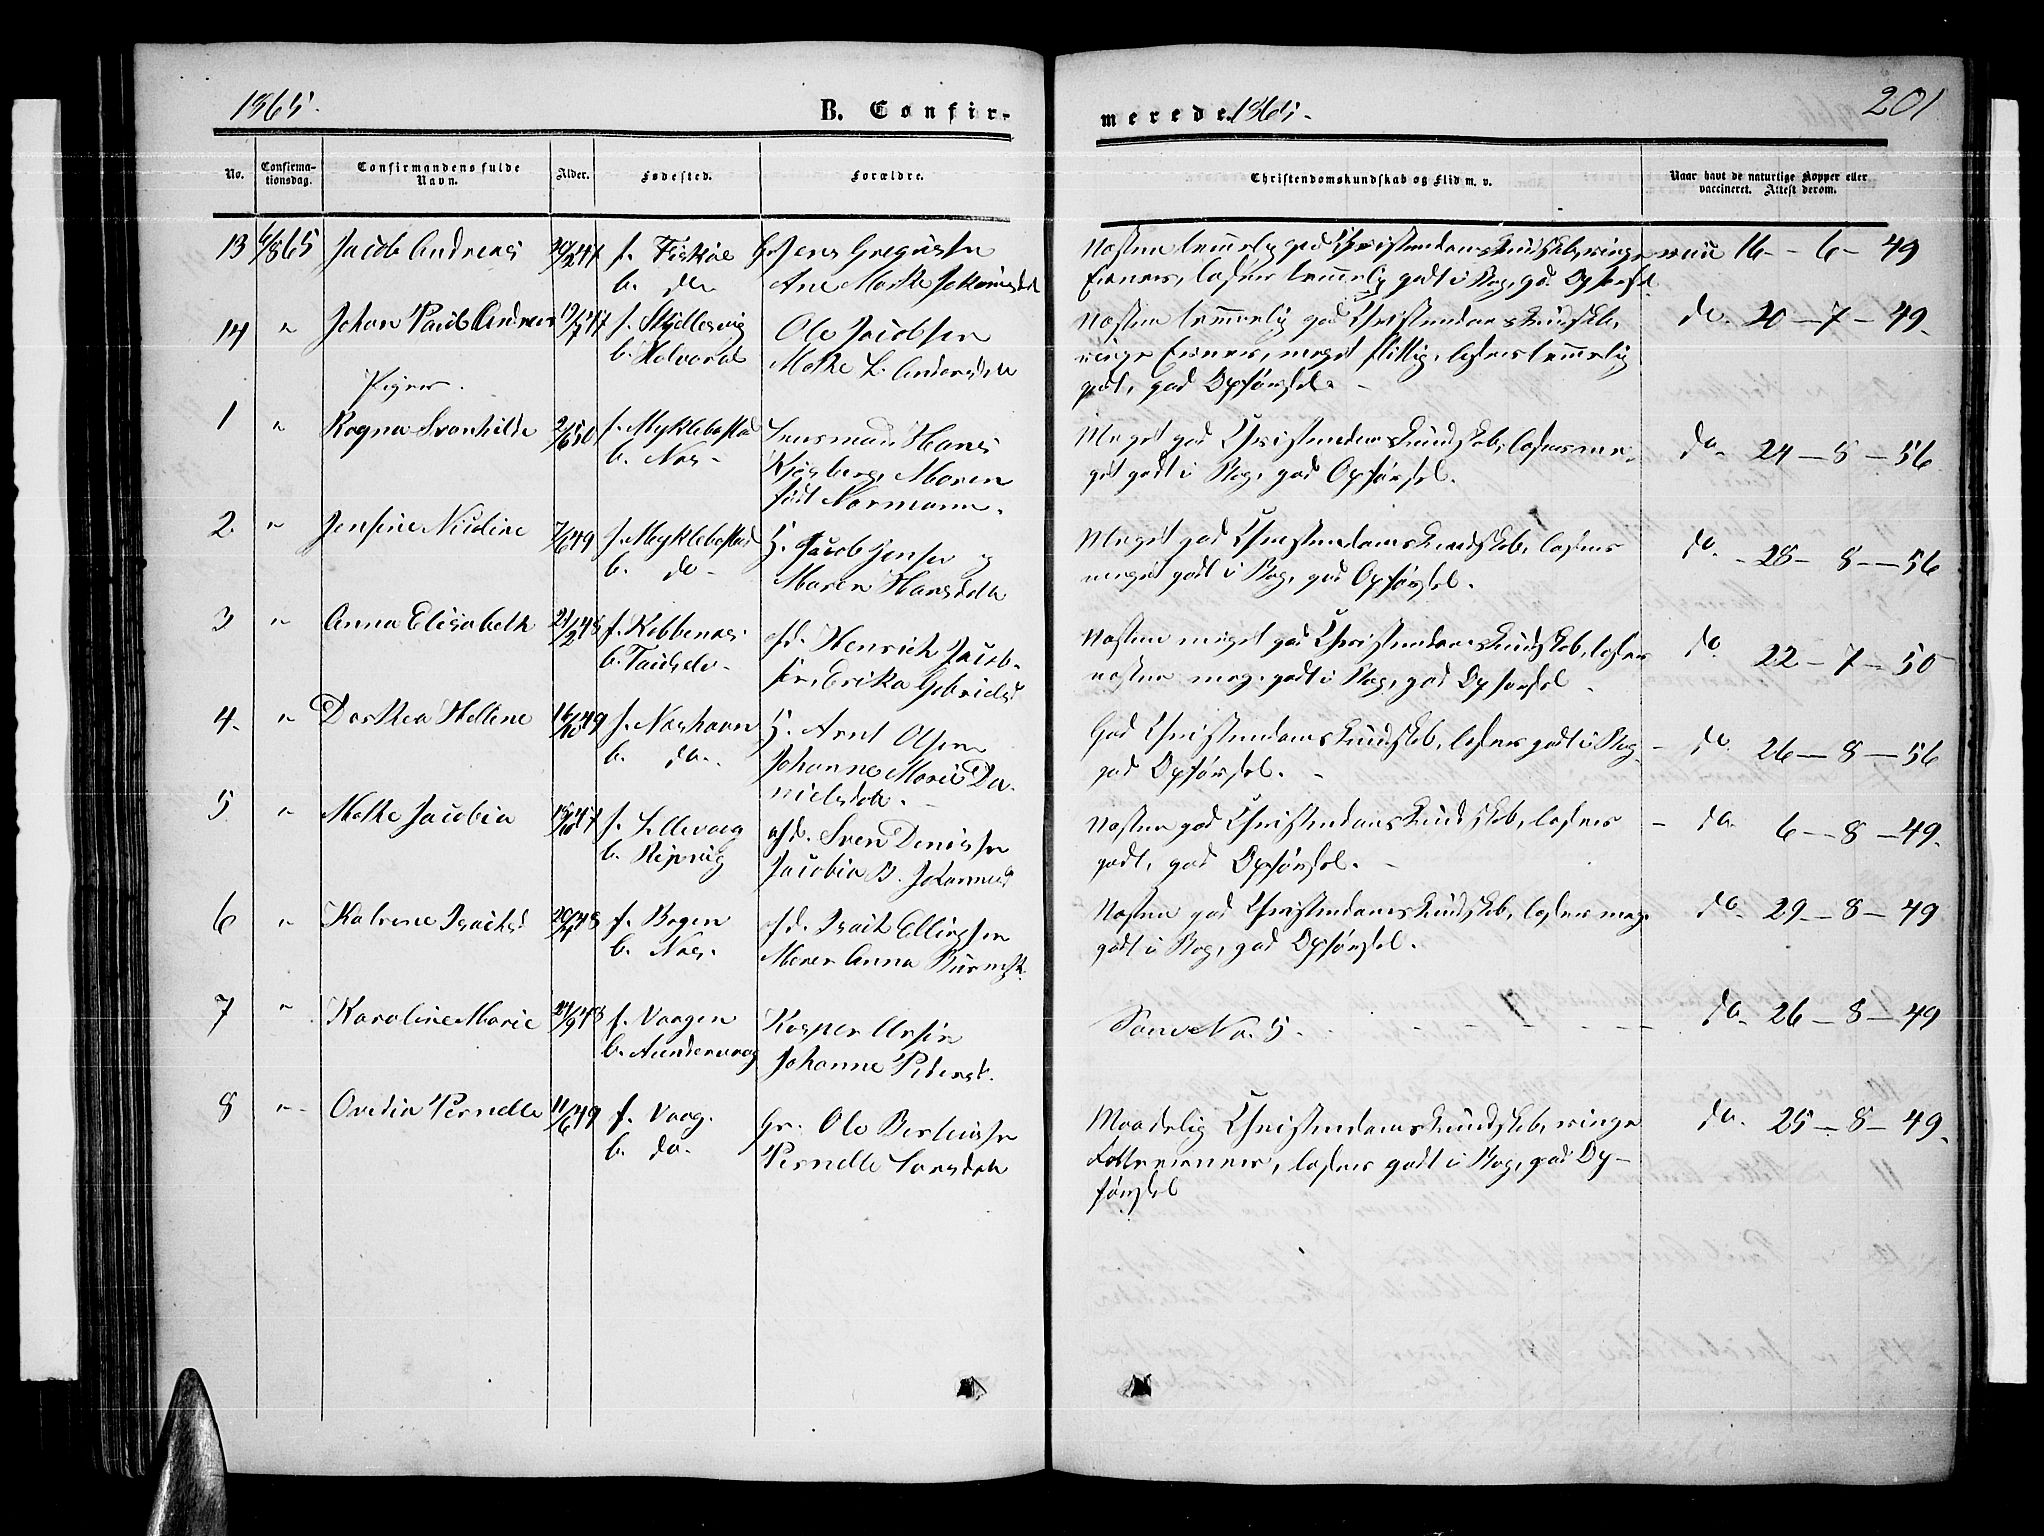 1865.
B. Confirmerede 1865.
201
No.
Confirmationsdag.
Confirmandens fulde Navn.
Alder.
Fødested.
Forældre.
Christendomskundskab og Flid m. v.
Naar havt de naturlige Kopper eller vaccineret. Attest derom.
13 6/8 65 Jacob Andreas 20/2 47 f. Fiskøe
b. do
Jens
Ane Johannisdt
Næsten temmelig god Christendomskundskab, ringe
Evner, læser temmelig godt i Bog, god Opførsel
16 - 6 - 49
14 " Johan Andreas 17/7 47 f.
b.
Ole Jacobsen
Methe L. Andersdtr
Næsten temmelig god Christendomskundskab,
ringe Evner, meget flittig, læser temmelig
godt, god Opførsel. -
do. 20 - 7 - 49.
Piger.
1 " Ragna Svanhilde 2/6 50 f. Myklebostad
b. Nes -
Lensmand Hans
Kjosberg, Maren
født Normann.
Meget god Christendomskundskab, læser me-
get godt i Bog, god Opførsel.
do. 24 - 8 - 56
2. " Jensine Nicoline 7/6 49 f. Myklebostad
b. do -
H. Jacob Jensen og
Maren Hansdtr
Meget god Christendomskundskab, læser
meget godt i Bog, god Opførsel.
do. - 28 - 8 - 56
3 " Anna Elisabeth 21/2 48 f. Kobbenes
b.
afd. Henrich Jacob-
sen, Erika Gabrielsd
Næsten meget god Christendomskundskab, læser
næsten meg. godt i Bog, god Opførsel -
do 22 - 7 - 50
4. " Dorthea Helline 16/10 49 f. Neshavn
b. do.
H. Arnt Olsen
Johanne Marie Da-
nielsdtr. -
God Christendomskundskab, læser godt i Bog -
god Opførsel. -
do. 26 - 8 - 56
5. " Methe Jacobia 15/10 47 f. Lillevaag
b. Ripvig
afd. Sven Denissen
Jacobia B. Johannesd
Næsten god Christendomskundskab, læser -
godt, god Opførsel. -
do. 6 - 8 - 49.
6 " Katrine Isachsd f. Bogen
b. Nes.
afd. Isach Ellingsen
Maren Anna
Næsten god Christendomskundskab, læser meg.
godt i Bog, god Opførsel.
do. 29 - 8 - 49
7 " Karoline Marie 24/9 48 f. Vaagen
b.
Kasper
Johanne Pedersd.
Som No. 5. -
do. 26 - 8 - 49
8 " Ovedia Pernelle 11/6 49 f. Vaag.
b. do.
Gr. Ole Berthussen
Pernelle Larsdtr
Maadelig Christendomskundskab, ringe
Fatteevner, læser godt i Bog, god Op-
førsel
do. 25 - 8 - 49.